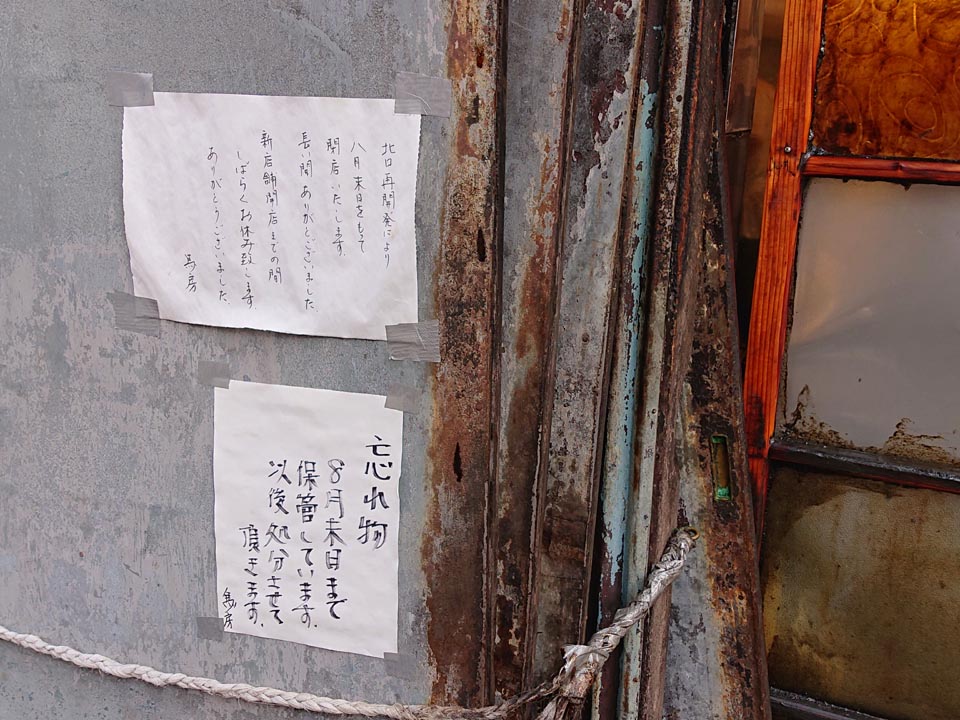 北口再開発により
八月末日をもって
閉店いたします。
長い間ありがとございました。
新店舗開店までの間
しばらくお休み致します。
ありがとうございました。
鳥房
忘れ物
8月末日まで
保管しています。
以後処分させて
頂きます。
鳥房